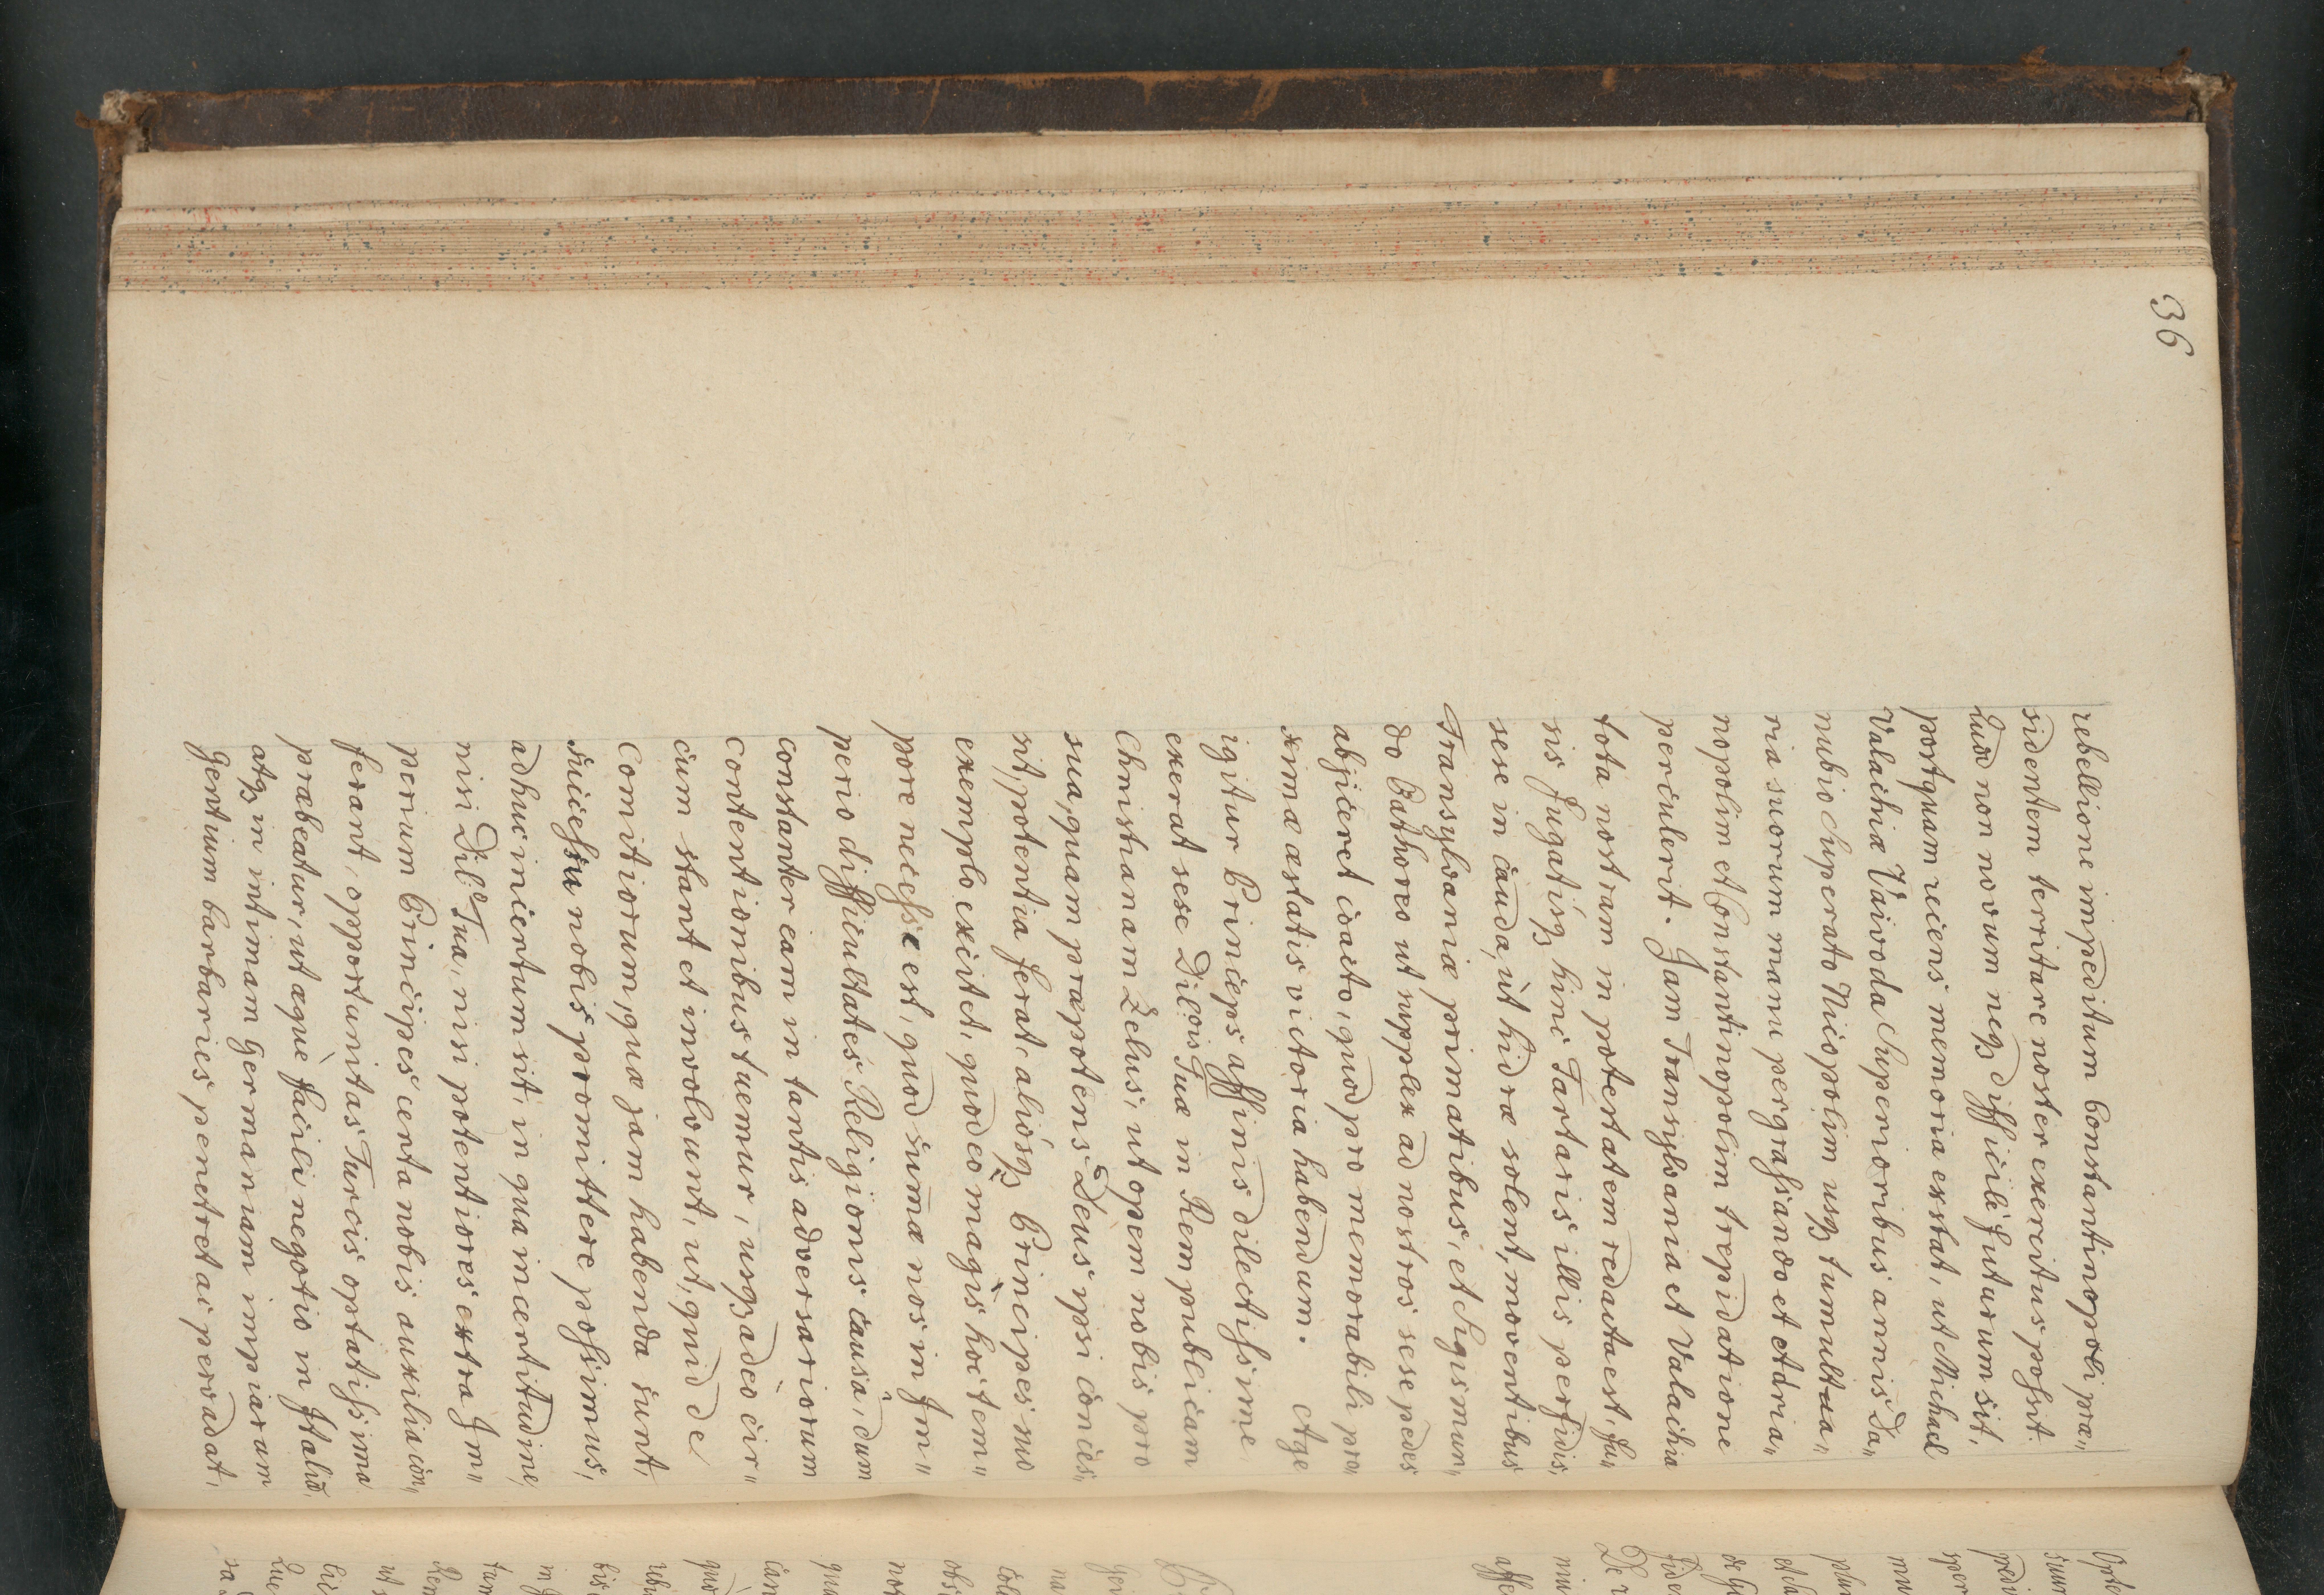 36
rebellione impeditum Constantinopoli præ„
sidentem territare noster exercitus possit.
Quod non novum neqȝ difficile futurum sit,
postquam recens memoria exstat, ut Michael
Valachiæ Vaivoda Superioribus annis Da„
nubio Superato Nicopolim usqȝ tumultua„
ria suorum manu pergrassando et Adria„
nopolim et Constantinopolim trepidatione
perculerit. Jam Transylvania et Valachia
tota nostram in potestatem redacta est, fu„
sis fugatisqȝ hinc Tartaris illis perfidis,
sese in cauda, ut hidræ solent, moventibus
Transylvaniæ primatibus, et Sigismun„
do Bathoreo ut supplex ad nostros sese pedes
abjiceret coacto, quod pro memorabili pro„
ximæ æstatis victoria habendum. Age
igitur Princeps affinis dilectissime
exerat sese Dil.ois Tuæ in Rempublicam
Christianam Zelus, ut opem nobis pro
sua, quam præpotens Deus ipsi conces„
sit, potentia ferat, aliosqȝ Principes suo
exemplo excitet, quod eo magis hoc tem„
pore necesse est, quod suma nos in Im„
perio difficultates Religionis causa, dum
constanter eam in tantis adversariorum
contentionibus tuemur, usqȝ adeo cir„
cum stant et involvunt, ut, quid de
Comitiorum, quæ jam habenda sunt,
successu nobis promittere possimus,
adhuc incertum sit, in qua incertitudine,
nisi Dil.o Tua, nisi potentiores extra Im„
perium Principes certa nobis auxilia con„
ferant, opportunitas Turcis optatissima
præbeatur, ut æque facili negotio in Italiã,
atqȝ in intimam Germaniam impiarum
Gentium barbaries penetret ac pervadat,